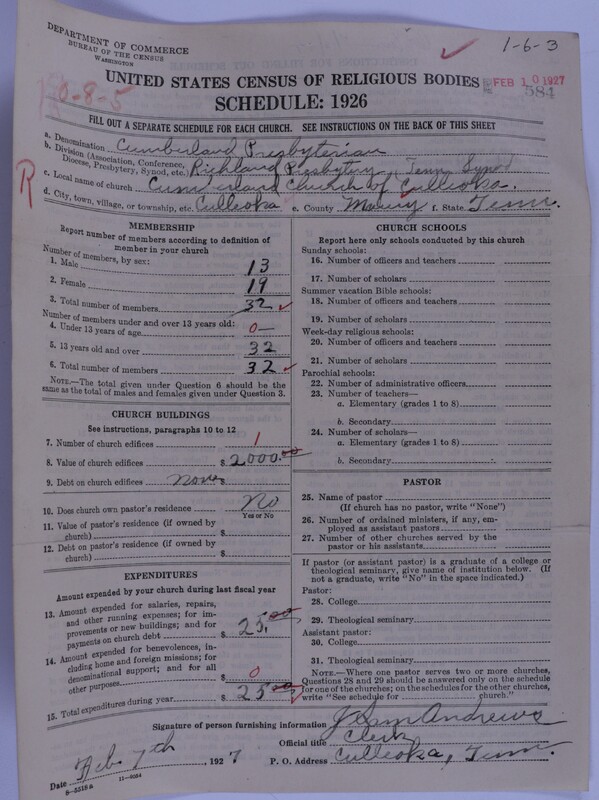 DEPARTMENT OF COMMERCE
BUREAU OF THE CENSUS
WASHINGTON
1-6-3
0-8-5
UNITED STATES CENSUS OF RELIGIOUS BODIES
FEB 10 1927
584
SCHEDULE: 1926
FILL OUT A SEPARATE SCHEDULE FOR EACH CHURCH. SEE INSTRUCTIONS ON THE BACK OF THIS SHEET
R
a. Denomination Cumberland Presbyterian
b. Division (Association, Conference, Diocese, Presbytery, Synod, etc.) Richland Presbytery, Tenn Synod
c. Local name of church Cumberland Church of Culleoka.
d. City, town, village, or township, etc. Culleoka e. County Maury f. State Tenn.
MEMBERSHIP
Report number of members according to definition of
member in your church
Number of members, by sex:
1. Male 13
2. Female 19
3. Total number of members 32
Number of members under and over 13 years old:
4. Under 13 years of age 0
5. 13 years old and over 32
6. Total number of members 32
NOTE.—The total given under Question 6 should be the
same as the total of males and females given under Question 3.
CHURCH BUILDINGS
See instructions, paragraphs 10 to 12
7. Number of church edifices 1
8. Value of church edifices $ 2000.00
9. Debt on church edifices None $
10. Does church own pastor's residence? No
Yes or No
11. Value of pastor's residence (if owned by
church) $
12. Debt on pastor's residence (if owned by
church) $
EXPENDITURES
Amount expended by your church during last fiscal year
13. Amount expended for salaries, repairs,
and other running expenses; for im-
provements or new buildings; and for
payments on church debt $ 25.00
14. Amount expended for benevolences, in-
cluding home and foreign missions; for
denominational support; and for all
other purposes $ 0
15. Total expenditures during year $ 25.00
CHURCH SCHOOLS
Report here only schools conducted by this church
Sunday schools:
16. Number of officers and teachers
17. Number of scholars
Summer vacation Bible schools:
18. Number of officers and teachers
19. Number of scholars
Week-day religious schools:
20. Number of officers and teachers
21. Number of scholars
Parochial schools:
22. Number of administrative officers
23. Number of teachers—
a. Elementary (grades 1 to 8)
b. Secondary
24. Number of scholars—
a. Elementary (grades 1 to 8)
b. Secondary
PASTOR
25. Name of pastor
(If church has no pastor, write "None")
26. Number of ordained ministers, if any, em-
ployed as assistant pastors
27. Number of other churches served by the
pastor or his assistants
If pastor (or assistant pastor) is a graduate of a college or
theological seminary, give name of institution below. (If
not a graduate, write "No" in the space indicated.)
Pastor:
28. College
29. Theological seminary
Assistant pastor:
30. College
31. Theological seminary
NOTE.—Where one pastor serves two or more churches,
Questions 28 and 29 should be answered only on the schedule
for one of the churches; on the schedules for the other churches,
write "See schedule for church."
Signature of person furnishing information Andrews
Official title Clerk
Date Feb. 7th 1927 P. O. Address Culleoka, Tenn.
8-5318 a 11-9034